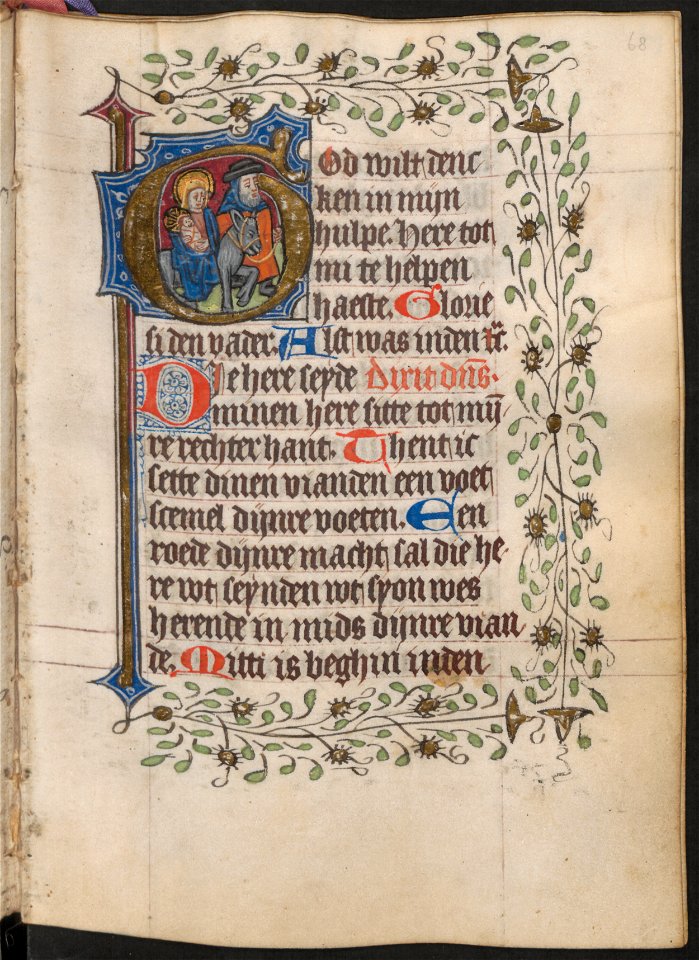 68
God wilt denc
ken in mijn
hulpe. Here tot
mi te helpen
haeste. Glorie
si den vader. Alst was inden
De here seyde Dixit dns.
minen here sitte tot mij
re rechter hant. Thent ic
sette dinen vianden een voet
scemel dijnre voeten. Een
roede dijnre macht sal die he
re wt seynden wt syon wes
herende in mids dijnre vian
de. Mitti is beghin inden